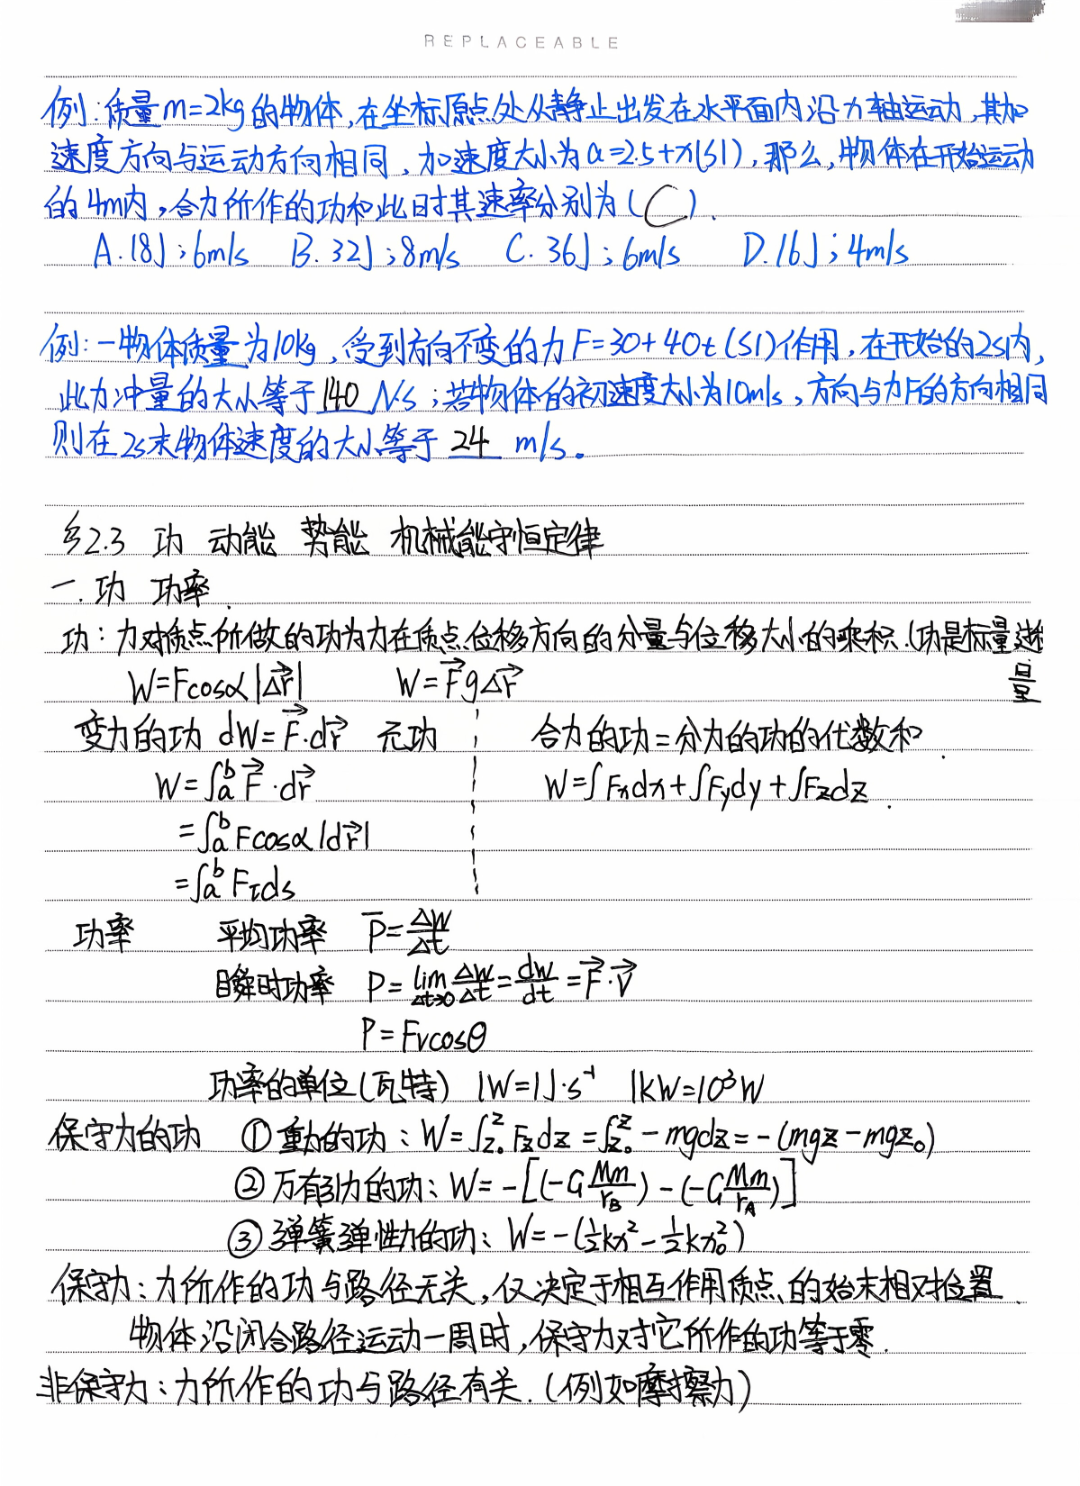 REPLACEABLE
例:质量m=2kg的物体,在坐标原点处从静止出发在水平面内沿x轴运动,其加
速度方向与运动方向相同,加速度大小为a=2.5+x(SI),那么,物体在开始运动
的4m内,合力所作的功和此时其速率分别为(C).
A.18J;6m/s B.32J;8m/s C.36J;6m/s D.16J;4m/s
例:一物体质量为10kg,受到方向不变的力F=30+40t(SI)作用,在开始的2s内,
此力冲量的大小等于140 N·s;若物体的初速度大小为10m/s,方向与力F的方向相同
则在2s末物体速度的大小等于 24 m/s。
§2.3 功 动能 势能 机械能守恒定律
一.功 功率.
功:力对质点所做的功为力在质点位移方向的分量与位移大小的乘积.(功是标量过程
量
W=Fcosα|Δr⃗| W=F⃗gΔr⃗
变力的功 dW=F⃗·dr⃗ 元功 合力的功=分力的功的代数和.
W=∫ₐᵇF⃗·dr⃗ W=∫Fxdx+∫Fydy+∫Fzdz.
=∫ₐᵇFcosα|dr⃗|
=∫ₐᵇFτds
功率 平均功率 P̄=ΔW/Δt
瞬时功率 P=lim(Δt→0) ΔW/Δt=dW/dt=F⃗·V⃗
P=Fvcosθ
功率的单位(瓦特) 1W=1J·s⁻¹ 1kW=10³W
保守力的功 ①重力的功:W=∫_{z₀}^{z}Fzdz=∫_{z₀}^{z}-mgdz=-(mgz-mgz₀)
②万有引力的功:W=-[(-G Mm/r_B)-(-G Mm/r_A)]
③弹簧弹性力的功:W=-(½kx²-½kx₀²)
保守力:力所作的功与路径无关,仅决定于相互作用质点的始末相对位置.
物体沿闭合路径运动一周时,保守力对它所作的功等于零.
非保守力:力所作的功与路径有关.(例如摩擦力)